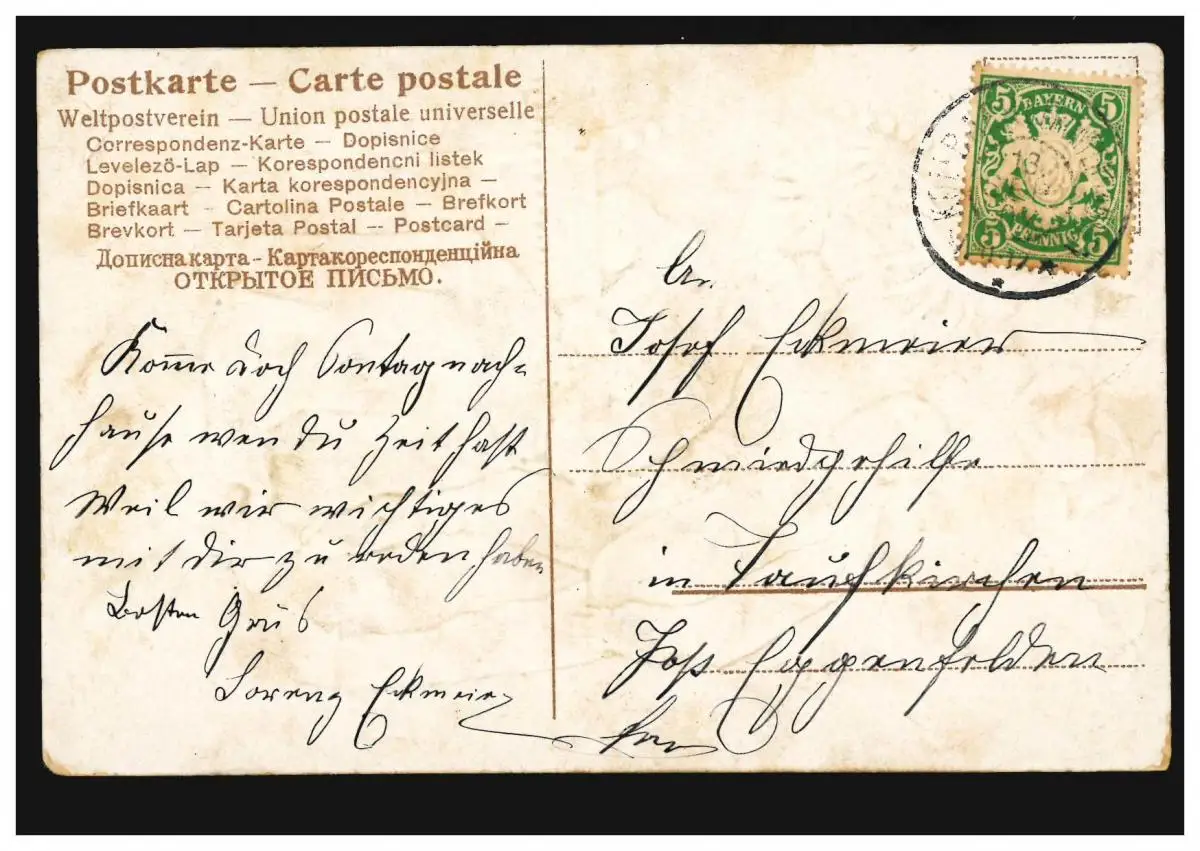 Postkarte — Carte postale
Weltpostverein — Union postale universelle
Correspondenz-Karte — Dopisnice
Levelező-Lap — Korespondencni listek
Dopisnica — Karta korespondencyjna —
Briefkaart - Cartolina Postale - Brefkort
Brevkort — Tarjeta Postal — Postcard —
Дописна карта - Картакореспонденцiйна
ОТКРЫТОЕ ПИСЬМО.
Kome doch Sontag nach-
hause wen du Zeit hast
Weil wir wichtiges
mit dir zu reden haben
Besten Grus
Lorenz Eckmeier
5 BAYERN 5
5 PFENNIG 5
An
Josef Eckmeier
Schmiedgehilfe
in Taufkirchen
Post Eggenfelden